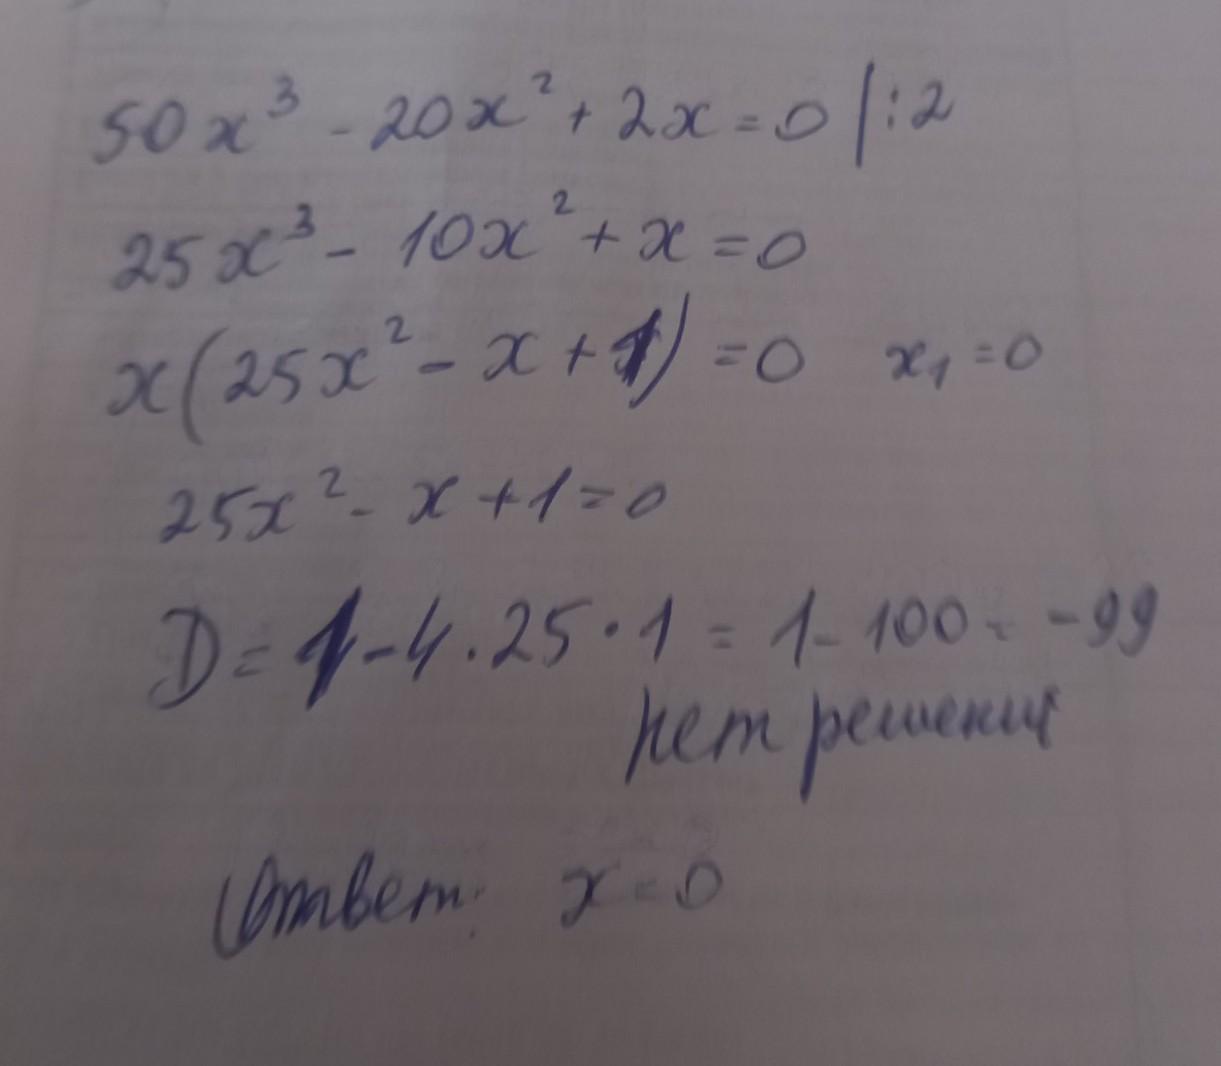 50x³ - 20x² + 2x = 0 |:2
25x³ - 10x² + x = 0
x(25x² - x + 1) = 0 x₁ = 0
25x² - x + 1 = 0
D = 1 - 4 · 25 · 1 = 1 - 100 = -99
нет решения
Ответ: x = 0